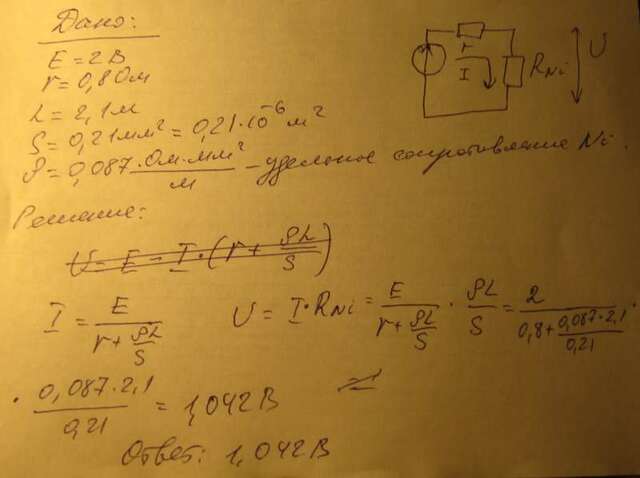 Дано:
E = 2В
r = 0,8 Ом
L = 2,1 м
S = 0,21 мм² = 0,21·10⁻⁶ м²
ρ = 0,087 · Ом·мм²/м – удельное сопротивление Ni.
r
I
R_Ni
U
Решение:
U = E - I·(r + ρL/S)
I = E/(r + ρL/S)
U = I·R_Ni = E/(r + ρL/S) · ρL/S = 2/(0,8 + 0,087·2,1/0,21) ·
· 0,087·2,1/0,21 = 1,042 В
Ответ: 1,042 В